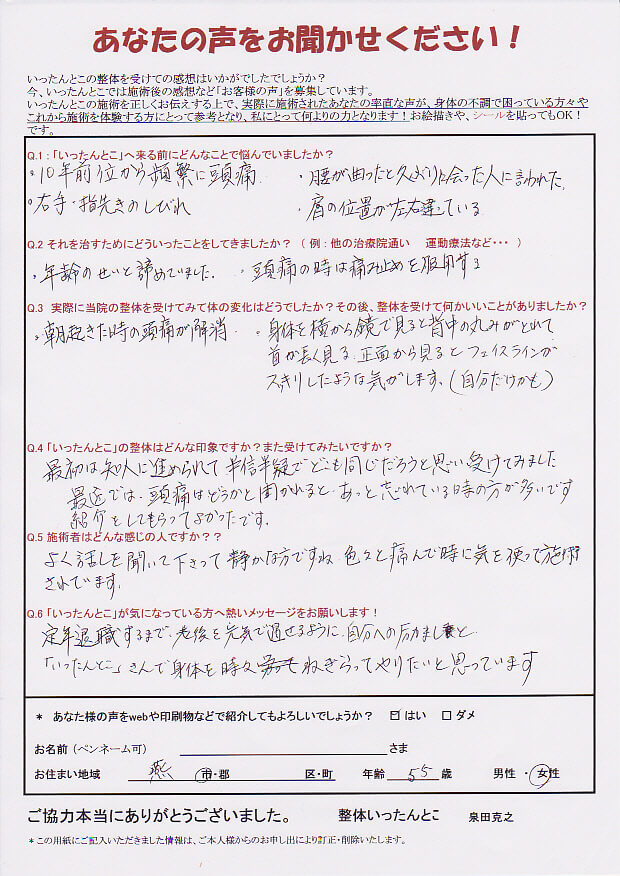 あなたの声をお聞かせください！
いったんとこの整体を受けての感想はいかがでしたでしょうか？
今、いったんとこでは施術後の感想など「お客様の声」を募集しています。
いったんとこの施術を正しくお伝えする上で、実際に施術されたあなたの率直な声が、身体の不調で困っている方々や
これから施術を体験する方にとって参考となり、私にとって何よりの力となります！お絵描きや、シールを貼ってもOK！
です。
Q.1：「いったんとこ」へ来る前にどんなことで悩んでいましたか？
・10年前位から頻繁に頭痛 ・腰が曲ったと久ぶりに会った人に言われた。
・右手・指先きのしびれ ・肩の位置が左右違っている
Q.2 それを治すためにどういったことをしてきましたか？ （ 例：他の治療院通い 運動療法など・・・ ）
・年齢のせいと諦めていました。 ・頭痛の時は痛み止めを服用する
Q.3 実際に当院の整体を受けてみて体の変化はどうでしたか？その後、整体を受けて何かいいことがありましたか？
・朝起きた時の頭痛が解消 ・身体を横から鏡で見ると背中の丸みがとれて
首が長く見る。正面から見るとフェイスラインが
スッキリしたような気がします。（自分だけかも）
Q.4 「いったんとこ」の整体はどんな印象ですか？また受けてみたいですか？
最初は知人に進められて半信半疑でどこも同じだろうと思い受けてみました
最近では、頭痛はどうかと聞かれると、あっと忘れている時の方が多いです
紹介をしてもらってよかったです。
Q.5 施術者はどんな感じの人ですか？？
よく話しを聞いて下さって静かな方ですね。色々と痛んで時に気を使って施術
されています。
Q.6 「いったんとこ」が気になっている方へ熱いメッセージをお願いします！
定年退職するまで、老後を元気で過せるように、自分への励ましと
「いったんとこ」さんで身体を時々ねぎらってやりたいと思っています
＊ あなた様の声をwebや印刷物などで紹介してもよろしいでしょうか？ ☑はい □ダメ
お名前（ペンネーム可） さま
お住まい地域 燕 市・郡 区・町 年齢 55 歳 男性 ・ 女性
ご協力本当にありがとうございました。 整体いったんとこ 泉田克之
＊この用紙にご記入いただきました情報は、ご本人様からのお申し出により訂正・削除いたします。